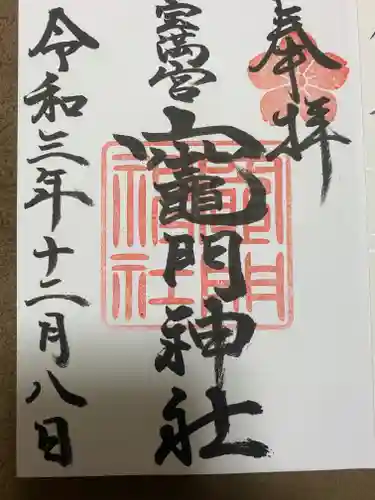 奉拝
宝満宮
竈門神社
令和三年十二月八日
竈門神社